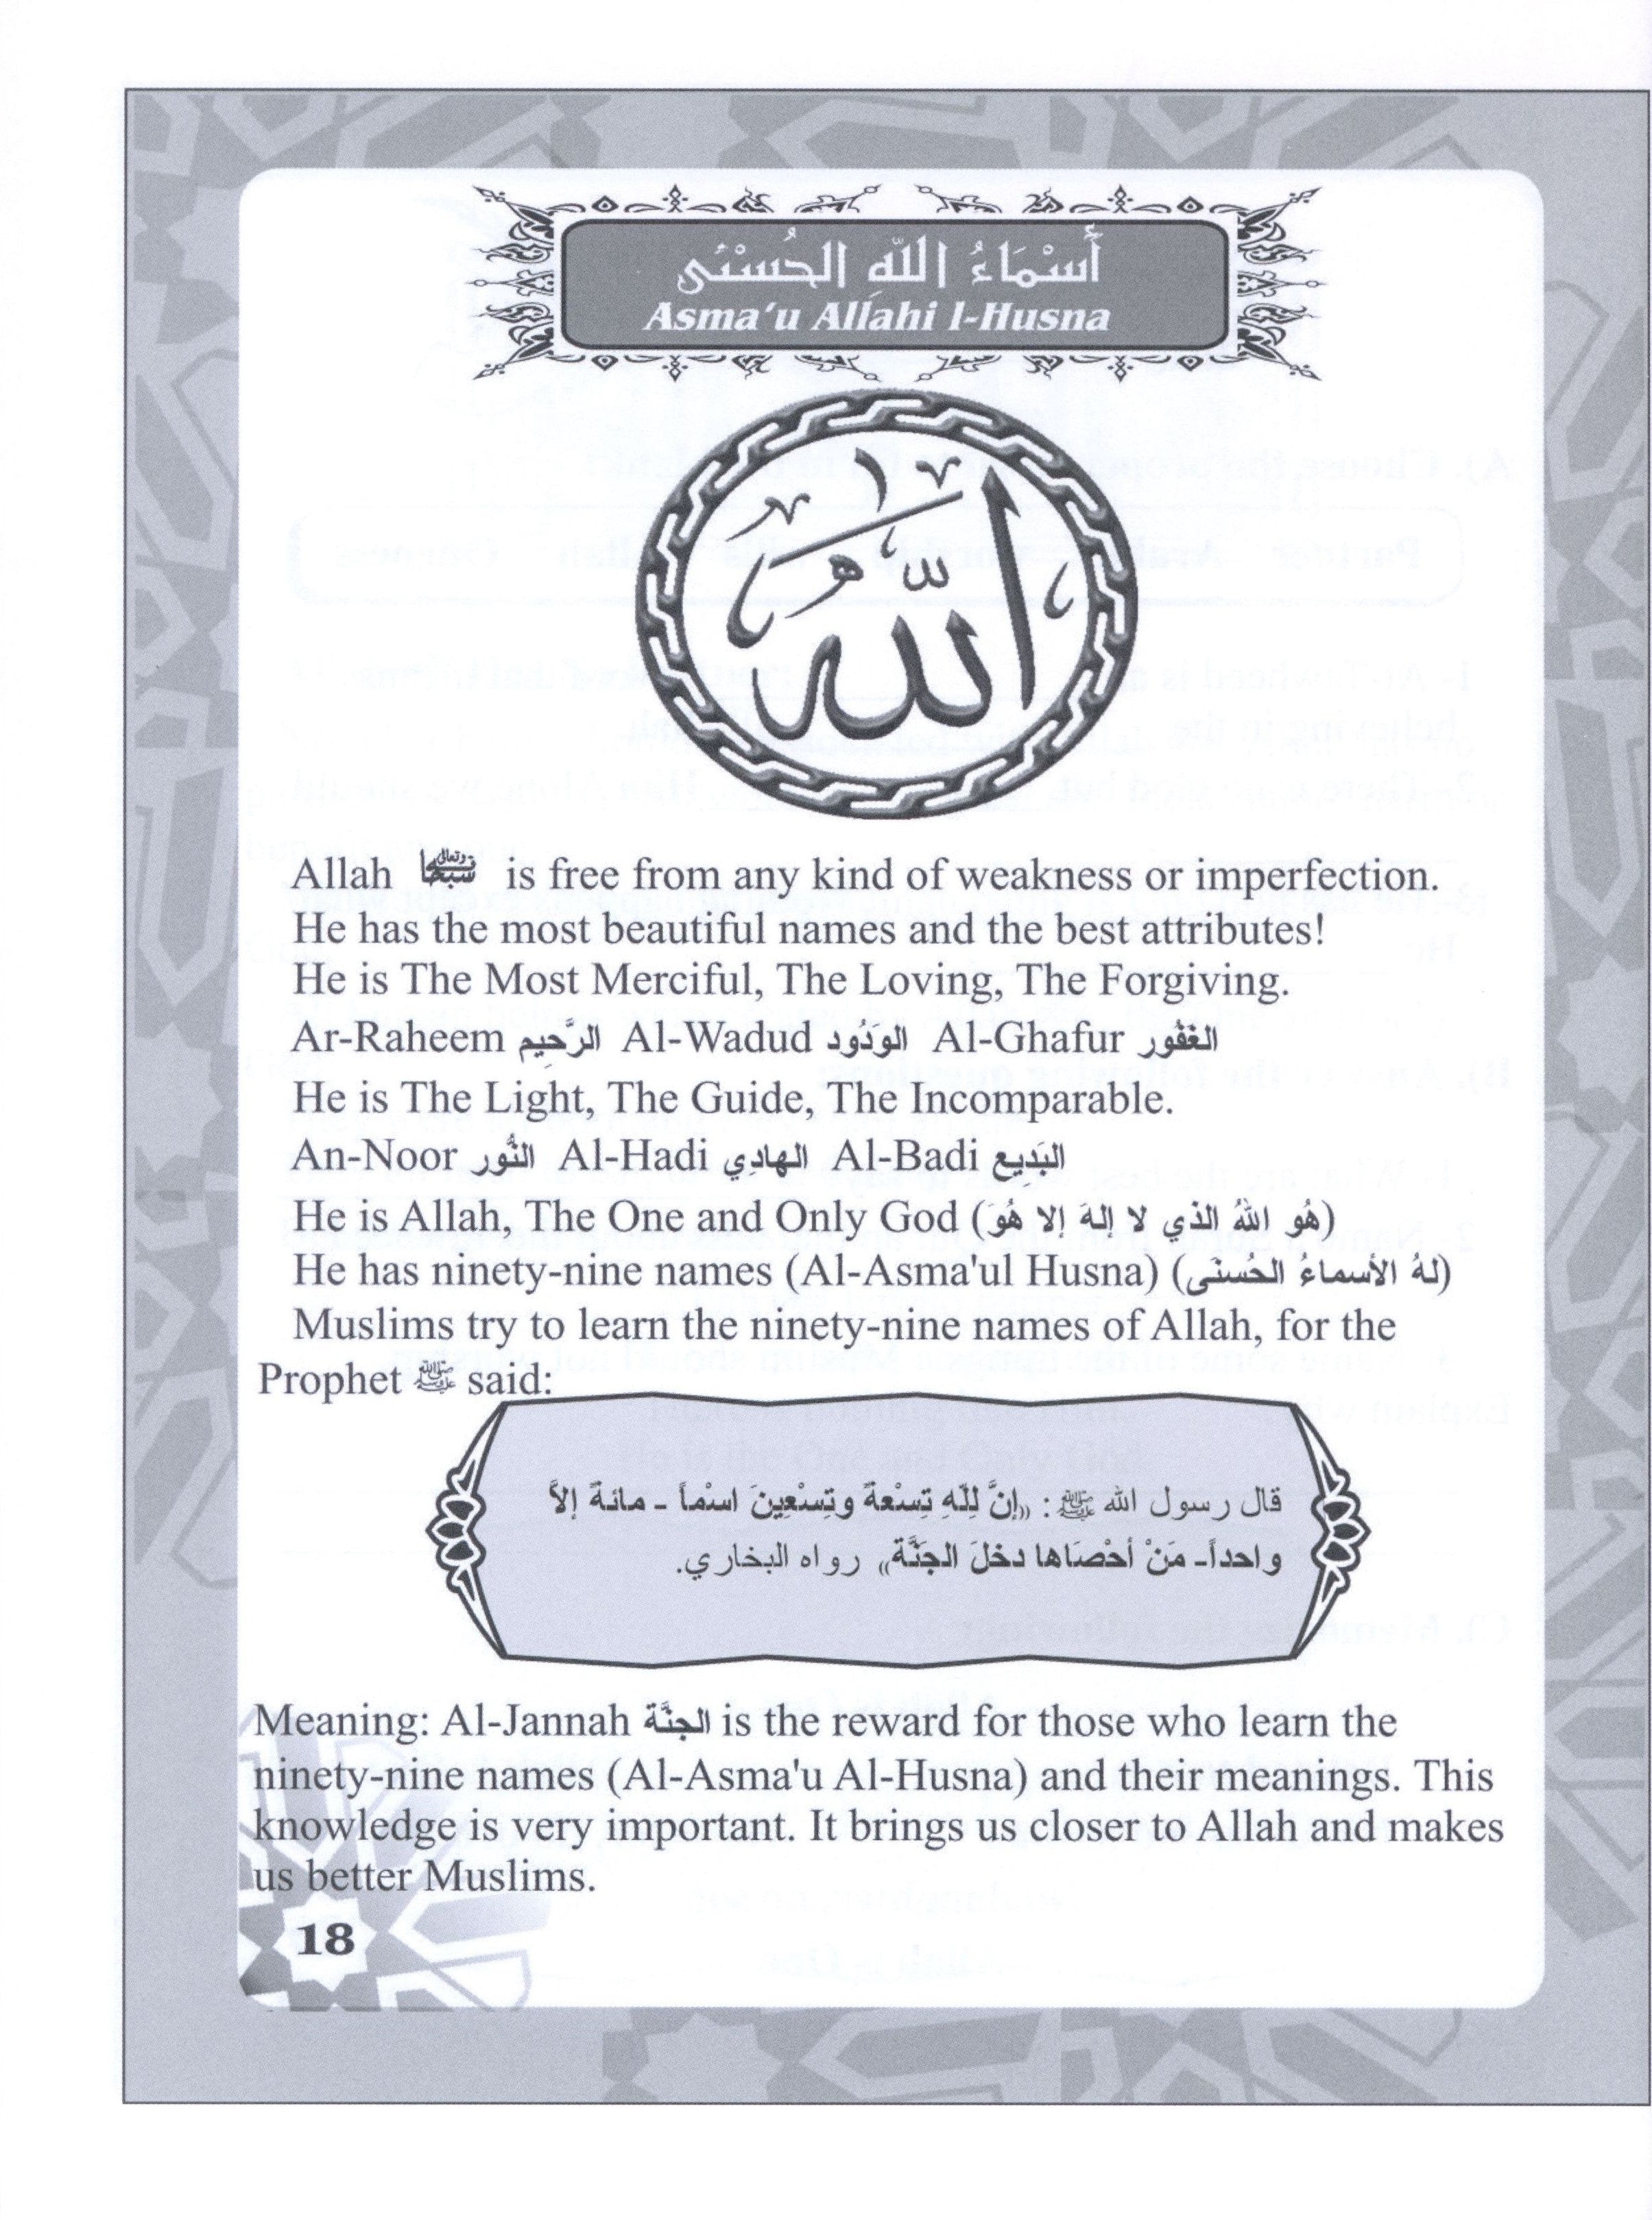 أَسْمَاءُ اللّهِ الحُسْنَى
Asma'u Allahi l-Husna
الله
Allah سبحانه وتعالى is free from any kind of weakness or imperfection.
He has the most beautiful names and the best attributes!
He is The Most Merciful, The Loving, The Forgiving.
Ar-Raheem الرَّحِيم Al-Wadud الوَدُود Al-Ghafur الغَفُور
He is The Light, The Guide, The Incomparable.
An-Noor النُّور Al-Hadi الهادِي Al-Badi البَدِيع
He is Allah, The One and Only God (هُو اللهُ الذي لا إلهَ إلا هُوَ)
He has ninety-nine names (Al-Asma'ul Husna) (لهُ الأسماءُ الحُسنَى)
Muslims try to learn the ninety-nine names of Allah, for the
Prophet ﷺ said:
قال رسول الله ﷺ: «إنَّ لِلّهِ تِسْعةً وتِسْعِينَ اسْماً - مائةً إلاَّ
واحداً- مَنْ أحْصَاها دخلَ الجَنَّة» رواه البخاري.
Meaning: Al-Jannah الجنَّة is the reward for those who learn the
ninety-nine names (Al-Asma'u Al-Husna) and their meanings. This
knowledge is very important. It brings us closer to Allah and makes
us better Muslims.
18